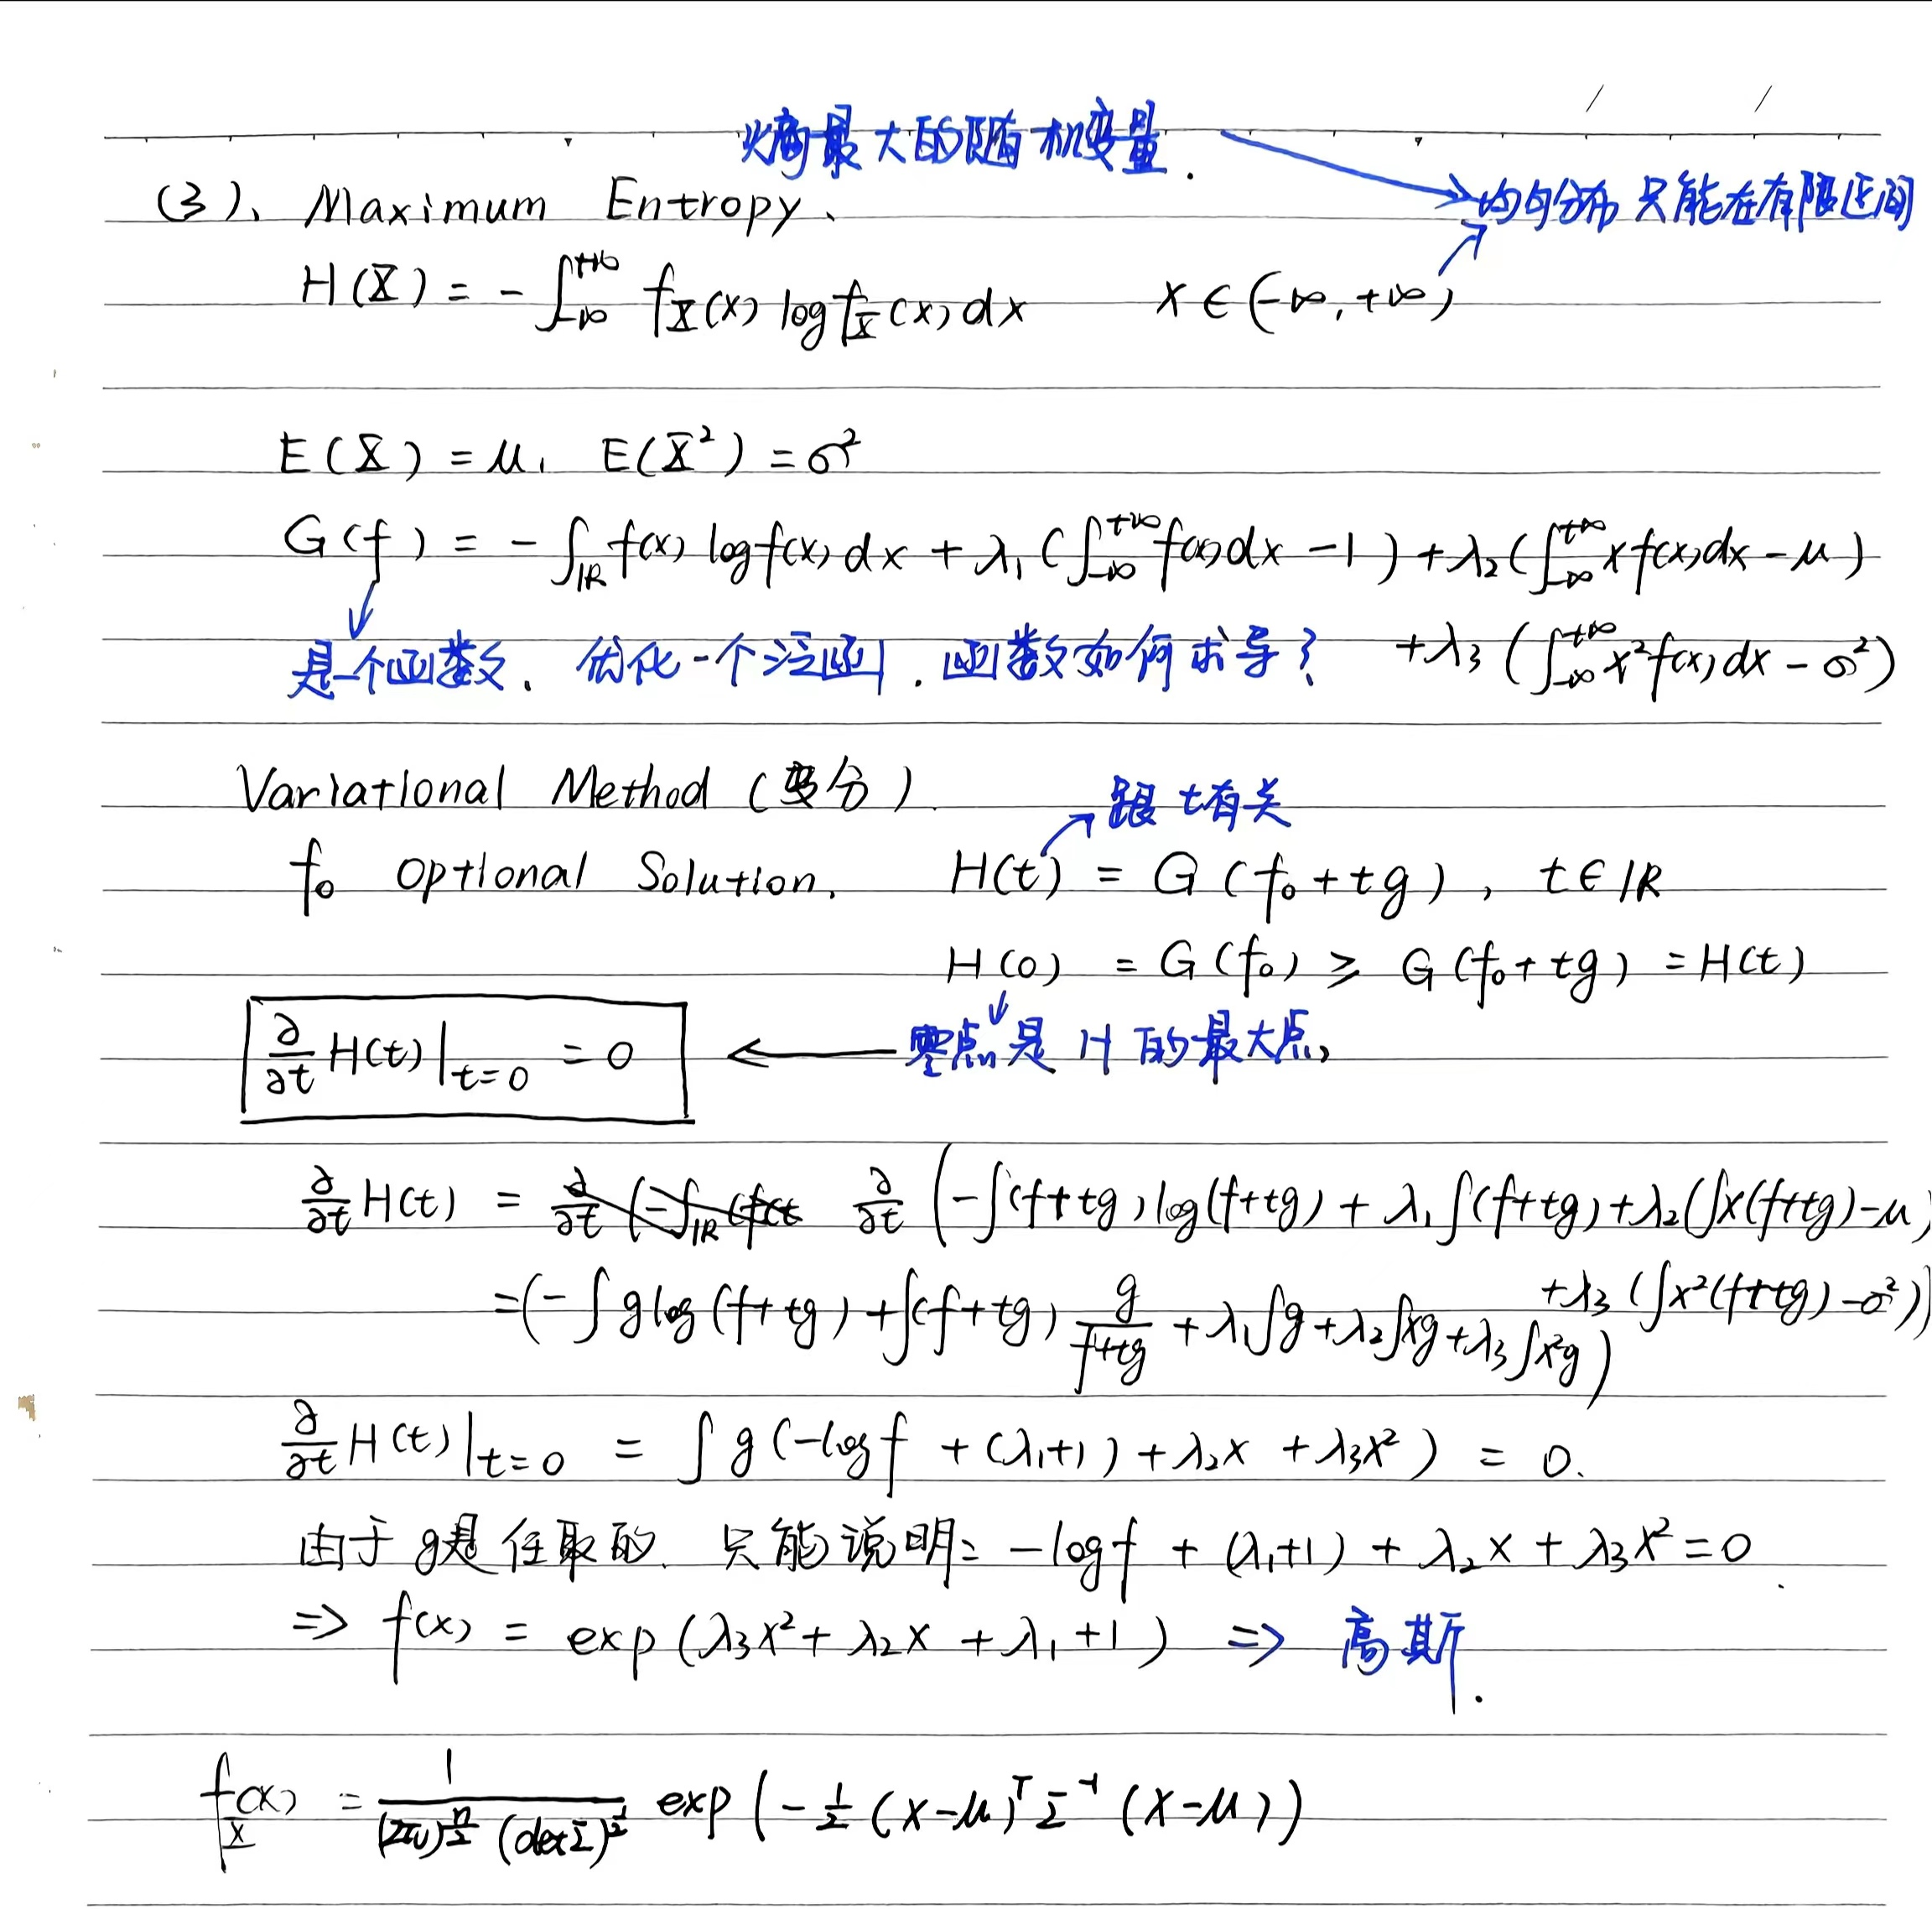 熵最大的随机变量.
(3)、Maximum Entropy.
均匀分布 只能在有限区间
H(X) = - ∫_{-∞}^{+∞} f_X(x) log f_X(x) dx    x ∈ (-∞, +∞)
E(X) = μ, E(X²) = σ²
G(f) = - ∫_ℝ f(x) log f(x) dx + λ₁ (∫_{-∞}^{+∞} f(x) dx - 1) + λ₂ (∫_{-∞}^{+∞} x f(x) dx - μ)
+ λ₃ (∫_{-∞}^{+∞} x² f(x) dx - σ²)
是个函数. 优化一个泛函. 函数如何求导?
Variational Method (变分)
跟 t 有关
f₀ Optional Solution. H(t) = G(f₀ + tg), t ∈ ℝ
H(0) = G(f₀) ≥ G(f₀ + tg) = H(t)
∂/∂t H(t)|_{t=0} = 0 ← 零点是 H 的最大点,
∂/∂t H(t) = ∂/∂t (-∫(f+tg) log(f+tg) + λ₁∫(f+tg) + λ₂(∫x(f+tg) - μ)
+ λ₃ (∫x²(f+tg) - σ²))
= (-∫ g log(f+tg) + ∫(f+tg) g/(f+tg) + λ₁∫g + λ₂∫xg + λ₃∫x²g)
∂/∂t H(t)|_{t=0} = ∫ g (-log f + (λ₁+1) + λ₂x + λ₃x²) = 0.
由于 g是任取的. 只能说明: -log f + (λ₁+1) + λ₂x + λ₃x² = 0.
⇒ f(x) = exp(λ₃x² + λ₂x + λ₁ + 1) ⇒ 高斯.
f_X(x) = 1/((2π)^{n/2} (det Σ)^{1/2}) exp(-1/2 (x-μ)^T Σ^{-1} (x-μ))